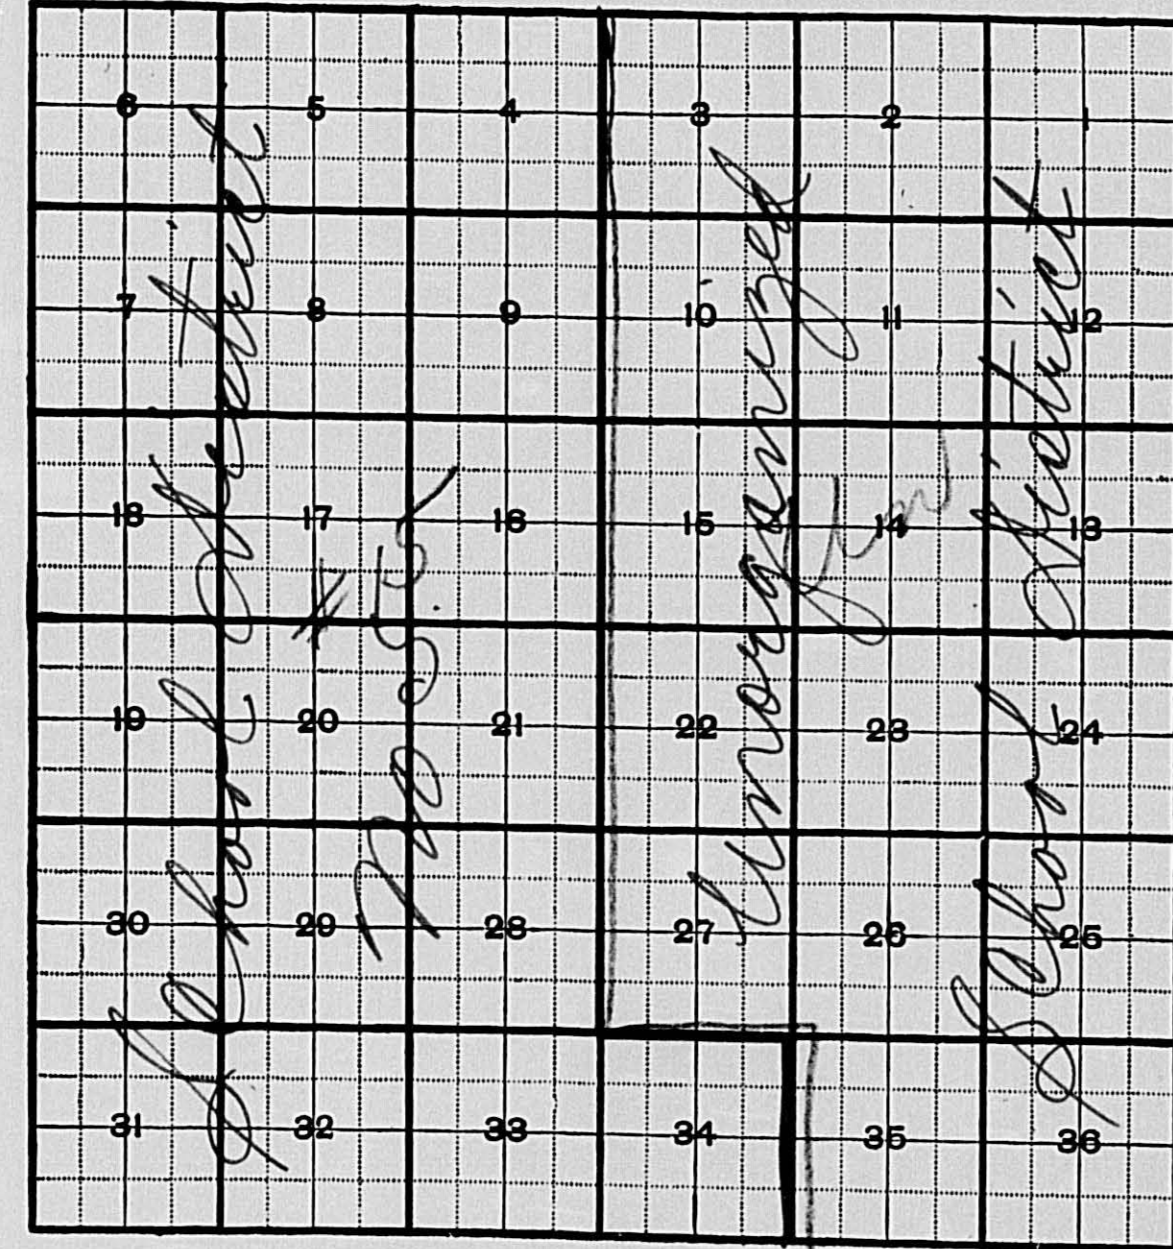 6 5 4 3 2 1
7 8 9 10 11 12
18 17 16 15 14 13
19 20 21 22 23 24
30 29 28 27 26 25
31 32 33 34 35 36
School District
No
Unorganized
School District